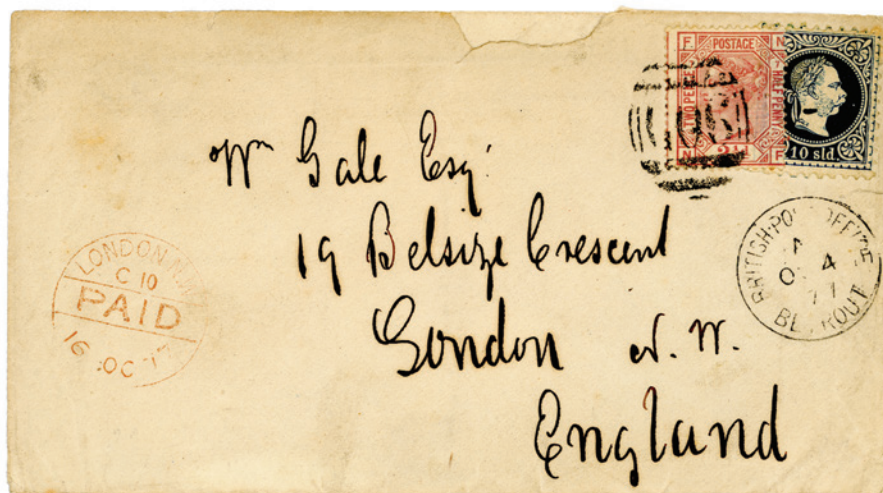 F POSTAGE N
TWO PENCE HALF PENNY
N 2½ F
10 sld.
Wm Gale Esqr
19 Belsize Crescent
London N.W.
England
BRITISH POST OFFICE
4
77
BEYROUT
LONDON N.W
C 10
PAID
16 OC 77